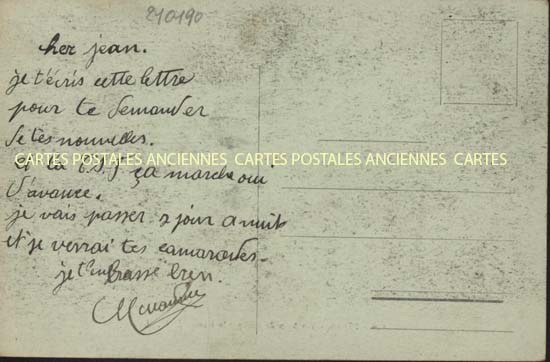 210190
cher jean.
je t'écris cette lettre
pour te demander
de tes nouvelles.
CARTES POSTALES ANCIENNES CARTES POSTALES ANCIENNES CARTES
et ta T.S.F ça marche oui
d'avance.
je vais passer 2 jour a
et je verrai tes camarades.
je t'embrasse bien.